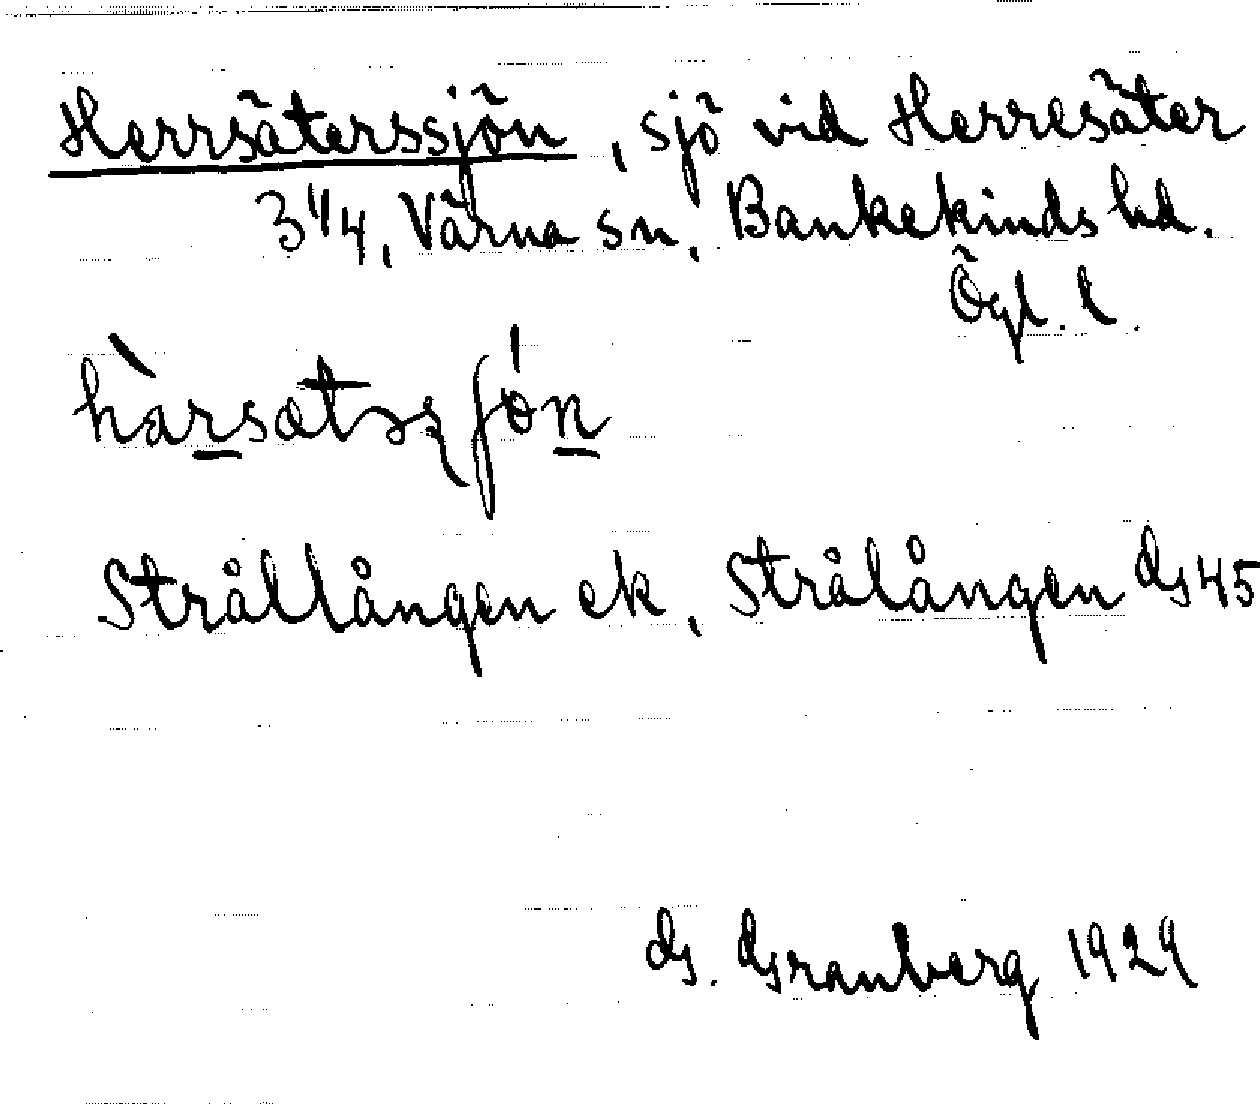 Herrsäterssjön, sjö vid Herresäter
3 1/4, Värna sn. Bankekinds hd.
Ögl. l.
hàrsatsʂjón
Strållången ek, Strålången Gs 45
G. Granberg 1929